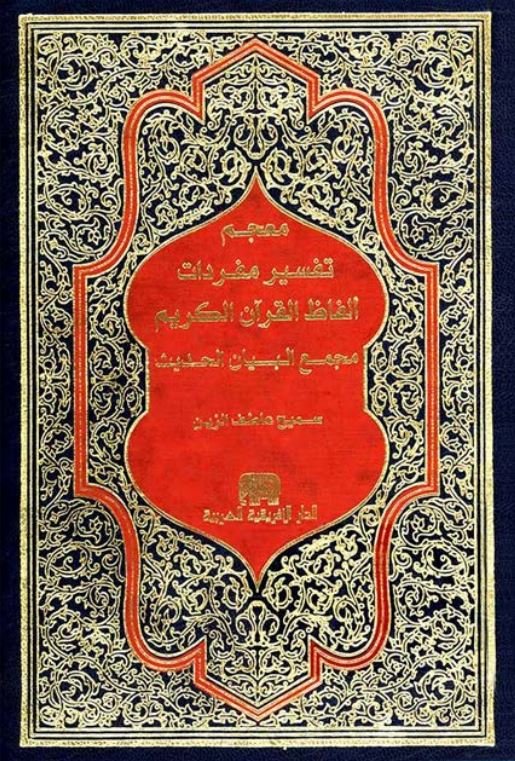 معجم
تفسير مفردات
ألفاظ القرآن الكريم
مجمع البيان الحديث
سميح عاطف الزين
الدار الإفريقية العربية